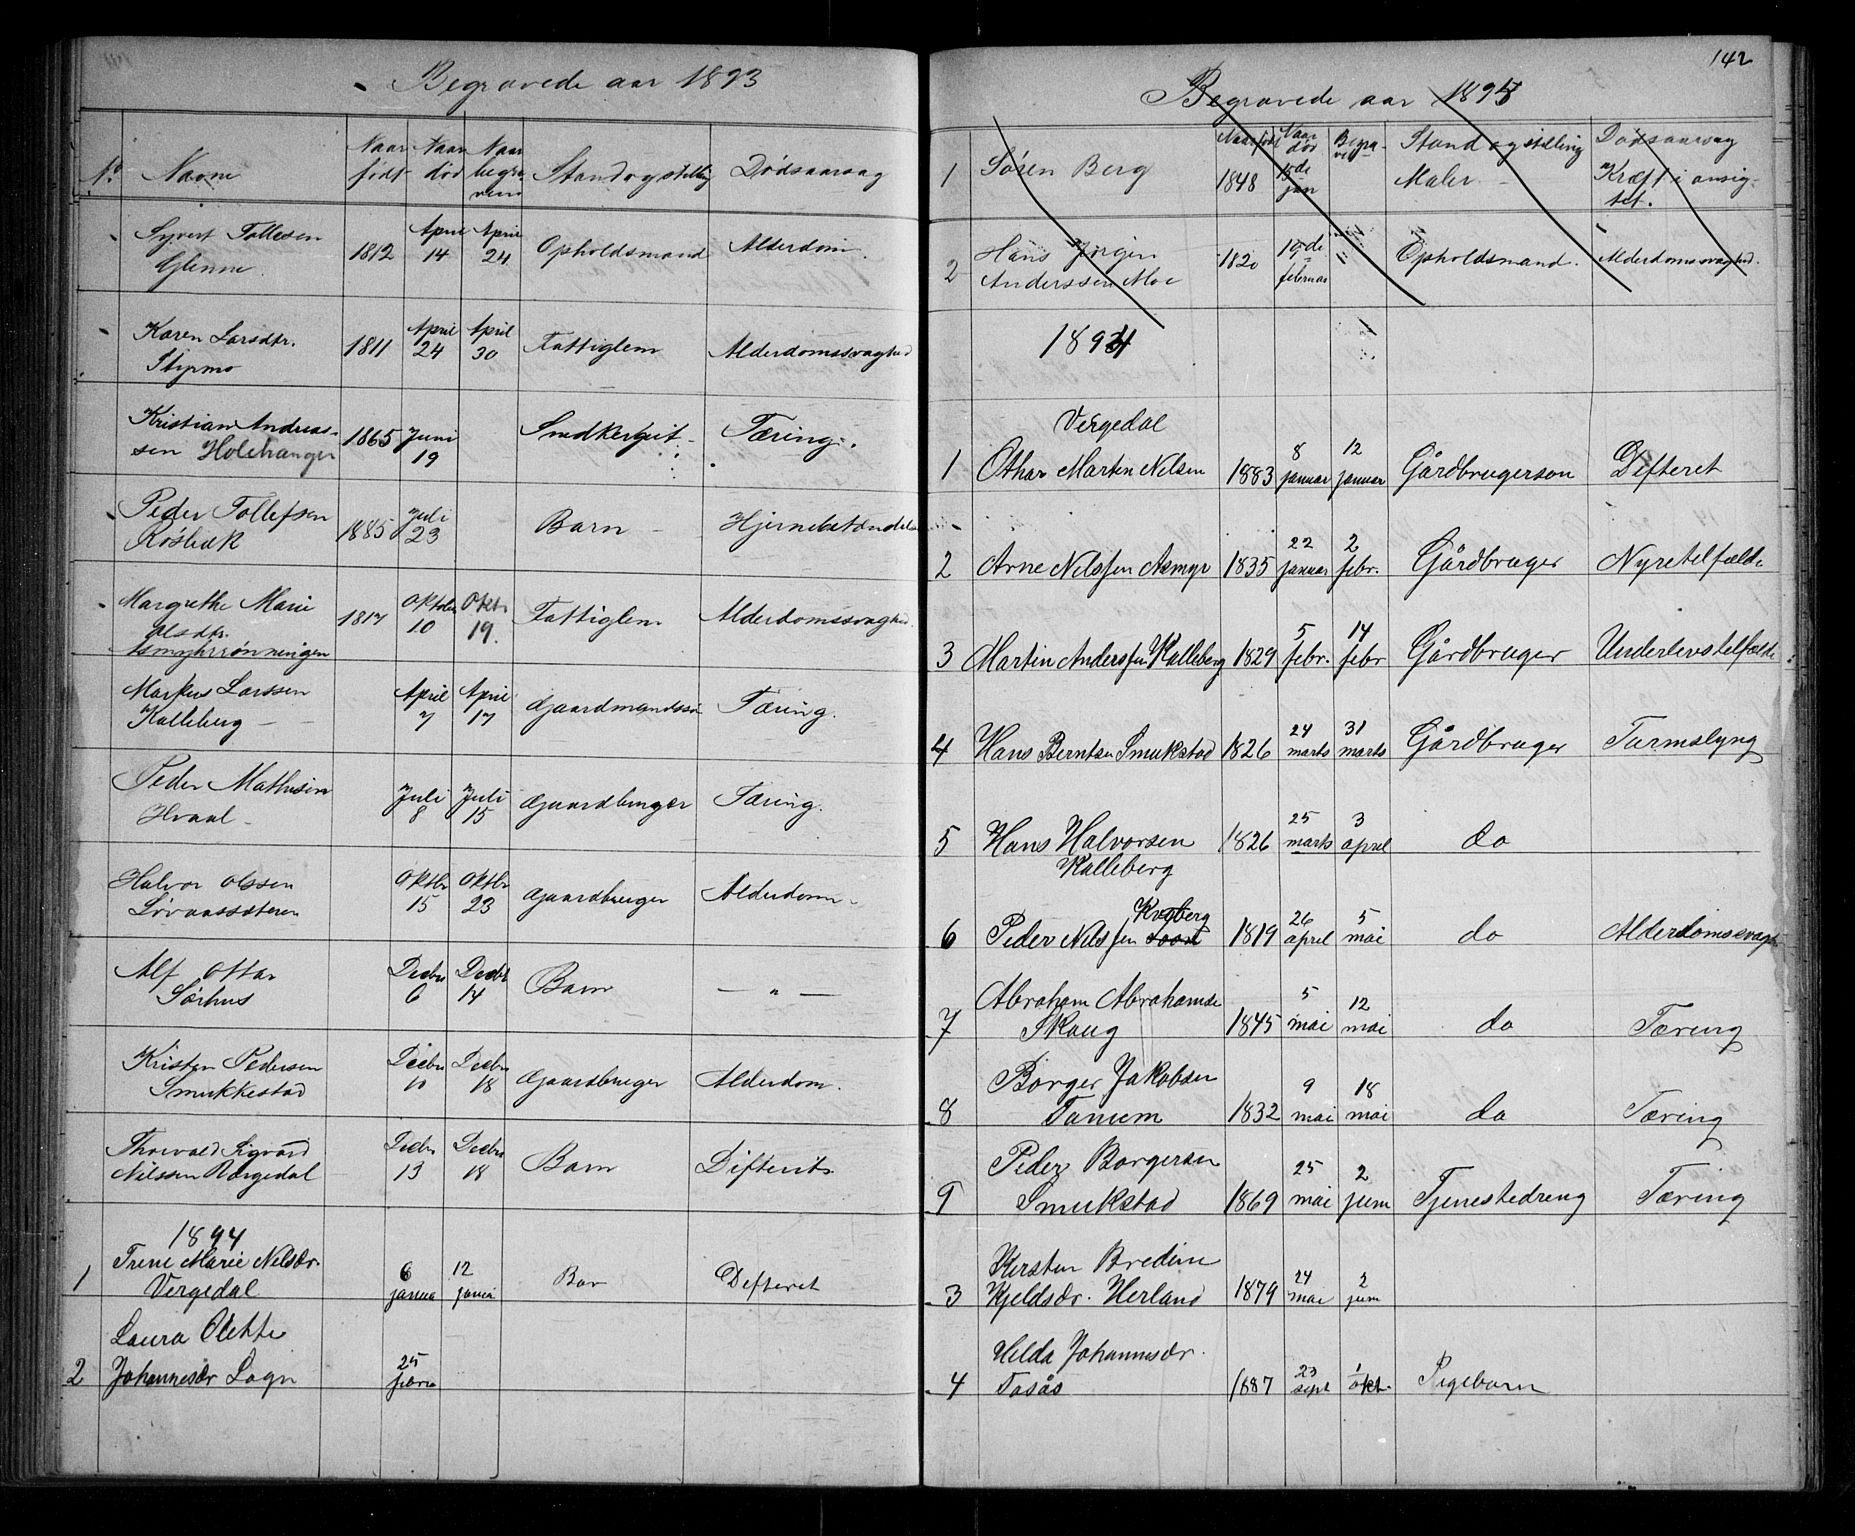 Begravede aar 1893
No Navne Naar født Naar død Naar begravem Standogstilling Dødsaarsag
Syvert Tollesen
Glenne. 1812 April 14 April 24 Opholdsmand Alderdom.
Karen Larsdtr.
Styrmo 1811 April 24 April 30 Fattiglem Alderdomssvaghed
Kristian Andreas-
sen Holehanger 1865 Juni 19 Smedkergut - Tæring.
Peder Tollefsen
Kosbæk 1885 Juli 23 Barn - Hjernebetændelse
Margrethe Marie
Olsdtr.
Asmyhrrønningen 1817 Oktober 10 Oktr 19. Fattiglem Alderdomssvaghed.
Markus Larssen
Kalleberg - April 7 April 17 Gaardmandssøn Tæring.
Peder Mathisen
Hvaal - Juli 8 Juli 15 Gaardbruger Tæring.
Halvor Olssen
Løvaassæteren Oktbr 15 Oktbr 23 Gaardbruger Alderdom -
Alf Ottar
Sørhus Decbr 6 Decbr 14 Barn — " —
Kristen Pedersen
Smukkestad Decbr 10 Decbr 18 Gaardbruger Alderdom.
Thorvald Sigvard
Nilssen Vergedal Decbr 13 Decbr 18 Barn Difterit
1894
1 Trine Marie Nilsdr.
Vergedal 6 janua 12 janua Bar Defteret
2 Laura Olette
Johannesdr Logn 25 febru
142
Begravede aar 1895
Naar født Naar død Begravet Standogstilling Dødsaarsag
1 Søren Berg 1848 15de jan Maler - Kræft i ansig-
tet.
2 Hans Jørgen
Anderssen Moe 1820 19de februar " Opholdsmand. Alderdomssvaghed.
1894
Vergedal
1 Othar Martin Nilsen 1883 8 januar 12 januar Gårdbrugerson Defteret
2 Arne Nilssen Asmyr 1835 22 januar 2 febr. Gårdbruger Nyretelfælde
3 Martin Anderssen Kalleberg 1829 5 febr. 14 febr Gårdbruger Underlevstelfælde
4 Hans Berntsen Smukstad 1826 24 marts 31 marts Gårdbruger Tarmslyng
5 Hans Halvorsen
Kalleberg 1826 25 marts 3 april do
Kvoberg
6 Peder Nilssen 1819 26 april 5 mai do Alderdomssvaghe
7 Abraham Abrahamse
Skoug 1845 5 mai 12 mai do Tæring
8 Borger Jakobsen
Tanum 1832 9 mai 18 mai do Tæring
9 Peder Borgersen
Smukstad 1869 25 mai 2 juni Tjenestedreng Tæring
3 Kirsten Bredine
Kjeldsdr. Herland 1879 24 mai 2 juni
4 Helda Johannesdr.
Tosås 1887 23 sept 1 okt. Pigebarn